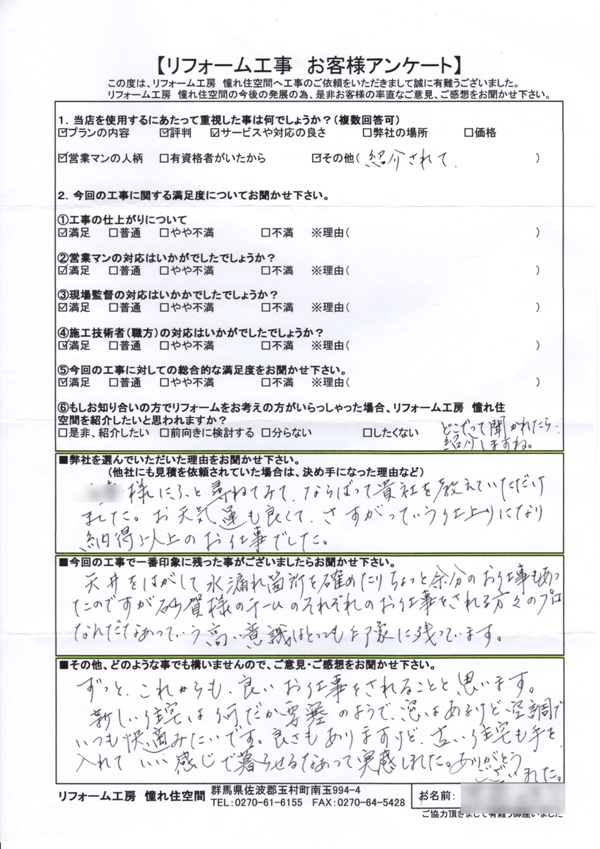 【リフォーム工事 お客様アンケート】
この度は、リフォーム工房 憧れ住空間へ工事のご依頼をいただきまして誠に有難うございました。
リフォーム工房 憧れ住空間の今後の発展の為、是非お客様の率直なご意見、ご感想をお聞かせ下さい。
1. 当店を使用するにあたって重視した事は何でしょうか?(複数回答可)
☑プランの内容 ☑評判 ☑サービスや対応の良さ □弊社の場所 □価格
☑営業マンの人柄 □有資格者がいたから ☑その他( 紹介されて。 )
2. 今回の工事に関する満足度についてお聞かせ下さい。
①工事の仕上がりについて
☑満足 □普通 □やや不満 □不満 ※理由( )
②営業マンの対応はいかがでしたでしょうか?
☑満足 □普通 □やや不満 □不満 ※理由( )
③現場監督の対応はいかかでしたでしょうか?
☑満足 □普通 □やや不満 □不満 ※理由( )
④施工技術者(職方)の対応はいかがでしたでしょうか?
☑満足 □普通 □やや不満 □不満 ※理由( )
⑤今回の工事に対しての総合的な満足度をお聞かせ下さい。
☑満足 □普通 □やや不満 □不満 ※理由( )
⑥もしお知り合いの方でリフォームをお考えの方がいらっしゃった場合、リフォーム工房 憧れ住
空間を紹介したいと思われますか?
□是非、紹介したい □前向きに検討する □分らない □したくない
聞かれたら
紹介しますね。
■弊社を選んでいただいた理由をお聞かせ下さい。
(他社にも見積を依頼されていた場合は、決め手になった理由など)
様にふと尋ねてみて、ならばって貴社を教えていただけ
ました。お天気運も良くて、さすがっていう仕上りになり
納得以上のお仕事でした。
■今回の工事で一番印象に残った事がございましたらお聞かせ下さい。
天井をはがして水漏れ箇所を確めたりちょっと余分のお仕事もあっ
たのですが砂賀様のチームのそれぞれのお仕事をされる方々のプロ
なんだなあっていう高い意識はとっても印象に残っています。
■その他、どのような事でも構いませんので、ご意見・ご感想をお聞かせ下さい。
ずっと、これからも、良いお仕事をされることと思います。
新しい住宅は何だか要塞のようで、窓はあるけど空調で
いつも快適みたいです。良さもありますけど、古い住宅も手を
入れていい感じで暮らせるなあって実感しました。ありがとう
ございました。
リフォーム工房 憧れ住空間 群馬県佐波郡玉村町南玉994-4
TEL:0270-61-6155 FAX:0270-64-5428
お名前:
ご協力頂きまして有難う御座いました